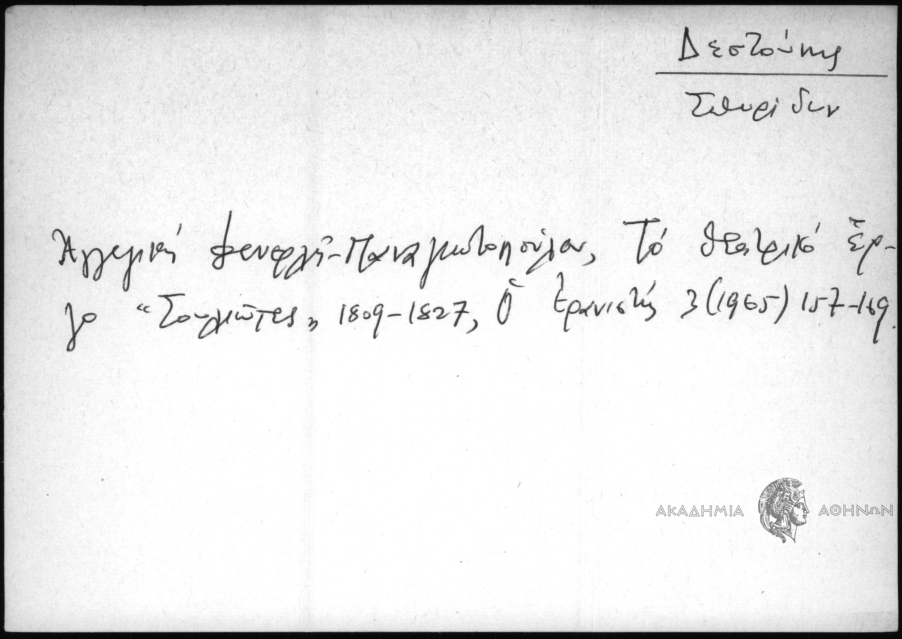 Δεστούνης
Σπυρίδων
Ἀγγελικὴ Φενερλῆ-Παναγιωτοπούλου, Τό θεατρικό ἔρ-
γο "Σουλιῶτες", 1809-1827, Ὁ Ἐρανιστής 3(1965) 157-169.
ΑΚΑΔΗΜΙΑ ΑΘΗΝΩΝ